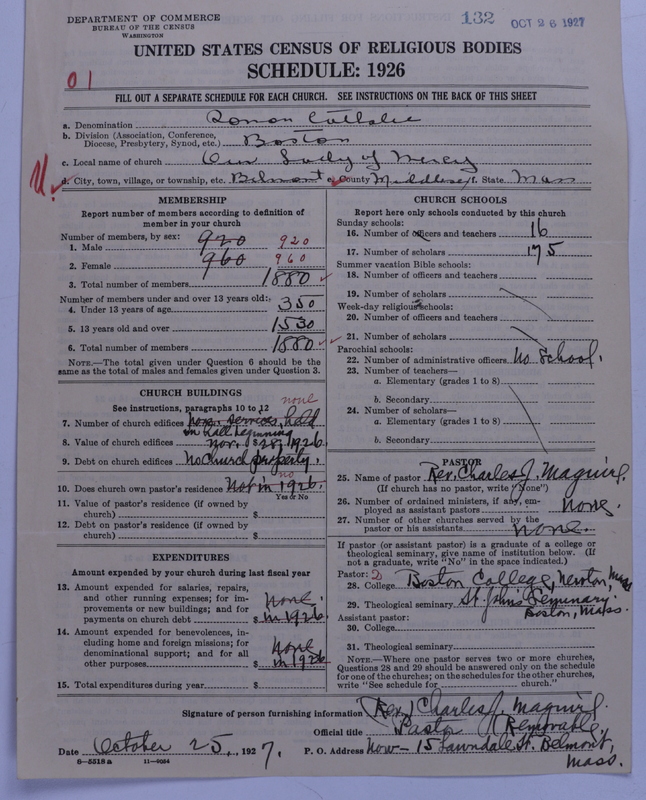 DEPARTMENT OF COMMERCE
BUREAU OF THE CENSUS
WASHINGTON
132 OCT 26 1927
UNITED STATES CENSUS OF RELIGIOUS BODIES
SCHEDULE: 1926
01
FILL OUT A SEPARATE SCHEDULE FOR EACH CHURCH. SEE INSTRUCTIONS ON THE BACK OF THIS SHEET
a. Denomination Roman Catholic
b. Division (Association, Conference, Diocese, Presbytery, Synod, etc.) Boston
c. Local name of church Our Lady of Mercy
d. City, town, village, or township, etc. Belmont e. County Middlesex f. State Mass
MEMBERSHIP
Report number of members according to definition of
member in your church
Number of members, by sex:
1. Male 920 920
2. Female 960 960
3. Total number of members 1880
Number of members under and over 13 years old:
4. Under 13 years of age 350
5. 13 years old and over 1530
6. Total number of members 1880
NOTE.—The total given under Question 6 should be
same as the total of males and females given under Question 3.
CHURCH BUILDINGS
See instructions, paragraphs 10 to 12
none
7. Number of church edifices None. services held
in Hall beginning
8. Value of church edifices Nov. $ 28, 1926.
9. Debt on church edifices No church property.
no
10. Does church own pastor's residence Not in 1926.
Yes or No
11. Value of pastor's residence (if owned by
church) $
12. Debt on pastor's residence (if owned by
church) $
EXPENDITURES
Amount expended by your church during last fiscal year
13. Amount expended for salaries, repairs,
and other running expenses; for improvements or new buildings; and for
payments on church debt $ None in 1926.
14. Amount expended for benevolences, including home and foreign missions; for
denominational support; and for all
other purposes $ None in 1926
15. Total expenditures during year $
CHURCH SCHOOLS
Report here only schools conducted by this church
Sunday schools:
16. Number of officers and teachers 16
17. Number of scholars 175
Summer vacation Bible schools:
18. Number of officers and teachers
19. Number of scholars
Week-day religious schools:
20. Number of officers and teachers
21. Number of scholars
Parochial schools:
22. Number of administrative officers No School.
23. Number of teachers—
a. Elementary (grades 1 to 8)
b. Secondary
24. Number of scholars—
a. Elementary (grades 1 to 8)
b. Secondary
PASTOR
25. Name of pastor Rev. Charles J. Maguire.
(If church has no pastor, write "None")
26. Number of ordained ministers, if any, employed as assistant pastors none.
27. Number of other churches served by the
pastor or his assistants none.
If pastor (or assistant pastor) is a graduate of a college or
theological seminary, give name of institution below. (If
not a graduate, write "No" in the space indicated.)
Pastor: 2
28. College Boston College, Newton Mass
29. Theological seminary St. John's Seminary.
Boston, Mass.
Assistant pastor:
30. College
31. Theological seminary
NOTE.—Where one pastor serves two or more churches,
Questions 28 and 29 should be answered only on the schedule
for one of the churches; on the schedules for the other churches,
write "See schedule for church."
Signature of person furnishing information (Rev.) Charles J. Maguire.
Official title Pastor (Removable)
Date October 25, 1927. P. O. Address Now - 15 Lawndale St. Belmont,
Mass.
6-5518a 11-9054